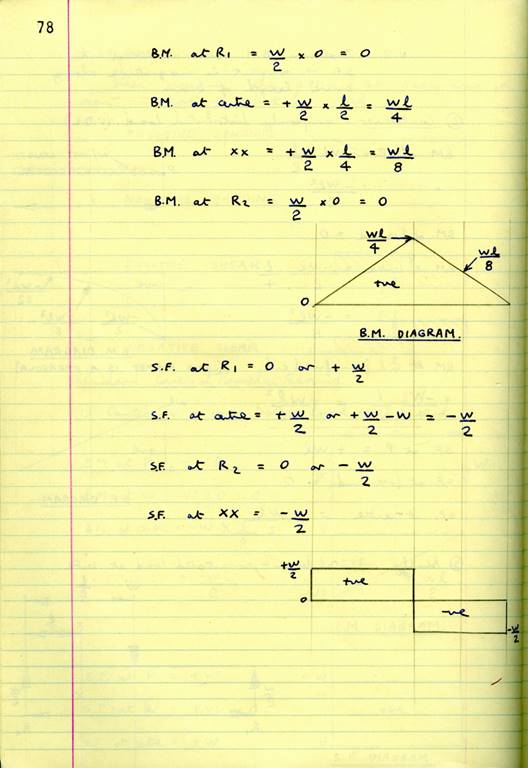 78
B.M. at R1 = W/2 × 0 = 0
B.M. at centre = + W/2 × l/2 = Wl/4
B.M. at xx = + W/2 × l/4 = Wl/8
B.M. at R2 = W/2 × 0 = 0
Wl/4
Wl/8
+ve
0
B.M. DIAGRAM.
S.F. at R1 = 0 or + W/2
S.F. at centre = + W/2 or + W/2 - W = - W/2
S.F. at R2 = 0 or - W/2
S.F. at XX = - W/2
+W/2
+ve
0
-ve
-W/2